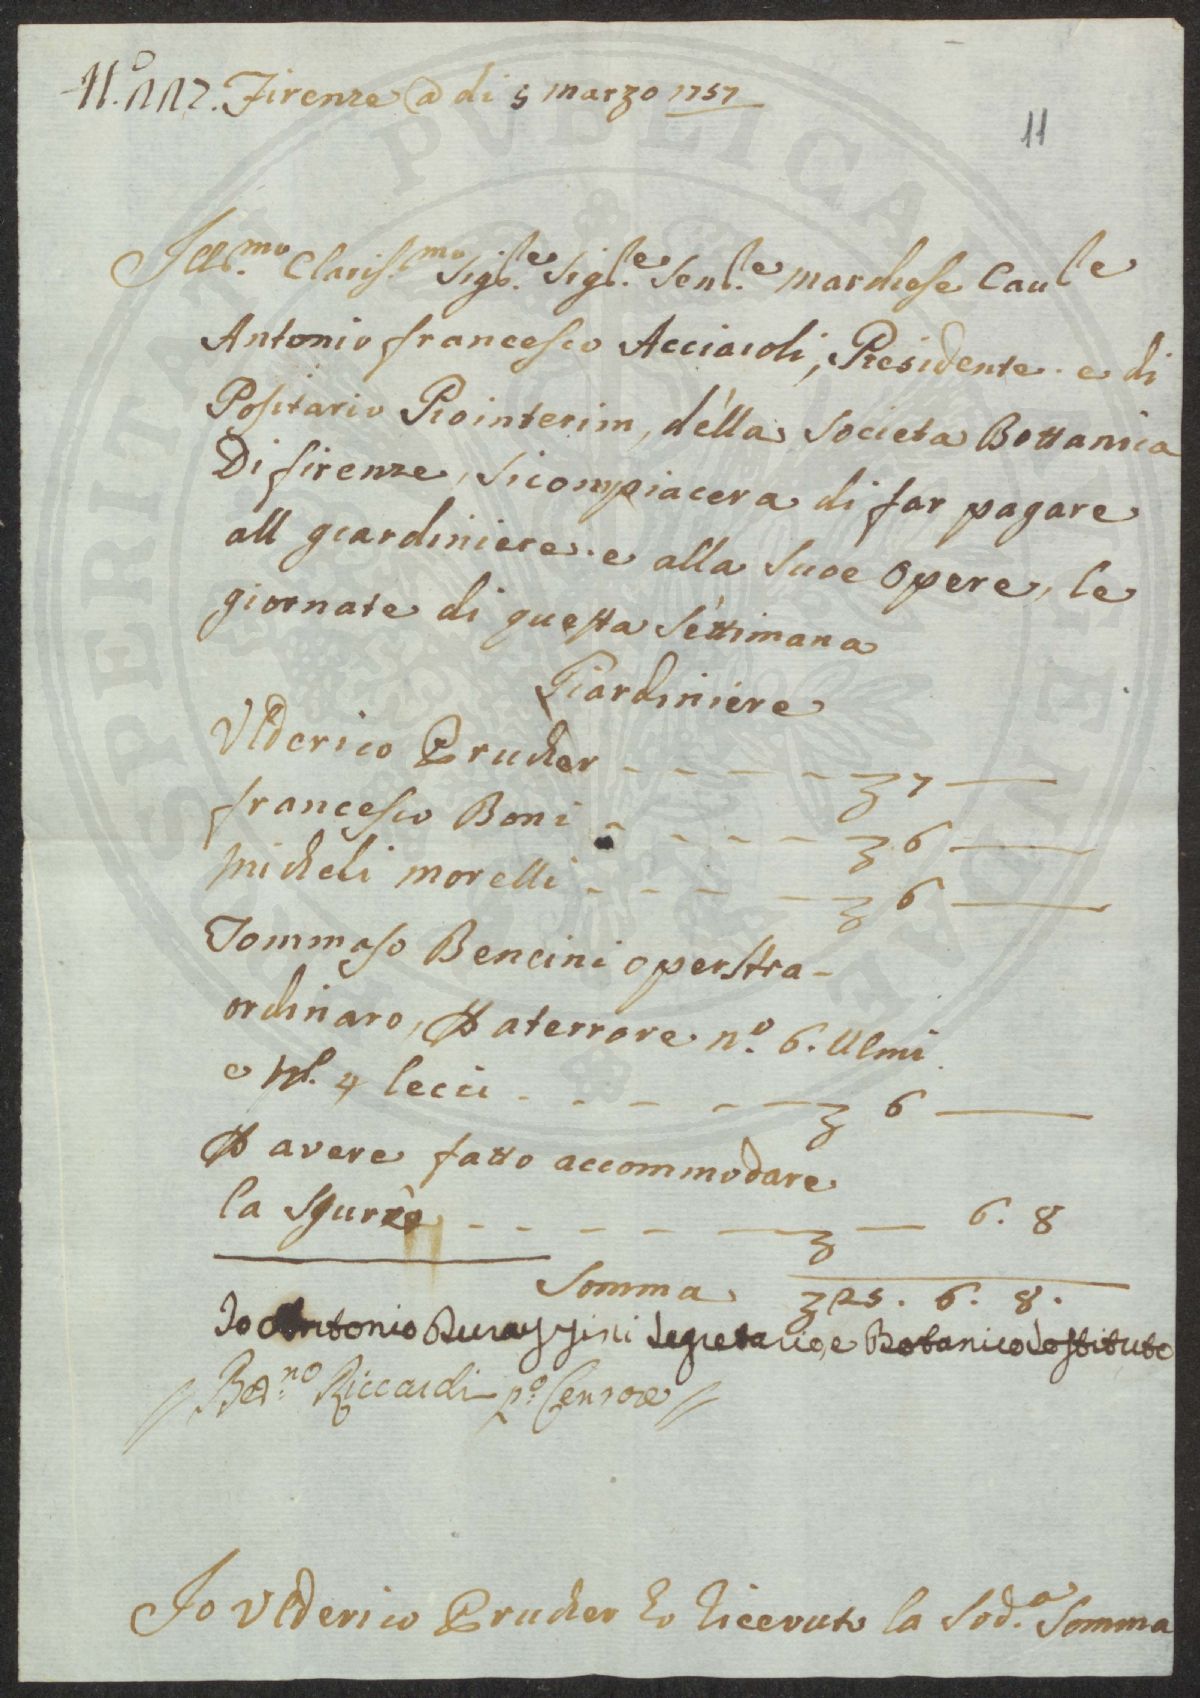 N.º 117. Firenze a di 5 marzo 1757
11
Ill.mo Clariss.mo Sig.le Sig.le Sen.le Marchese Cau.le
Antonio francesco Acciaioli, Presidente e di
Positario Prointerim, della Societa Bottanica
Di firenze, si compiacera di far pagare
all giardiniere e alla Suoe opere, le
giornate di questa settimana
Giardiniere
Vlderico Prucher - - - - - 7 —
francesco Boni - - - - - 6 —
Micheli morelli - - - - - 6 —
Tommaso Bencini oper stra-
ordinaro, p aterrare n.º 6. Ulmi
e n. 4 lecci - - - - - 6 —
p avere fatto accommodare
la - - - - - — 6. 8
Somma 25. 6. 8.
Io Antonio Durazzini Segretario, e Botanico Sostituto
// Ber.no Riccardi p.º Censore //
Io Vlderico Prucher ho ricevuto la Sod.a Somma